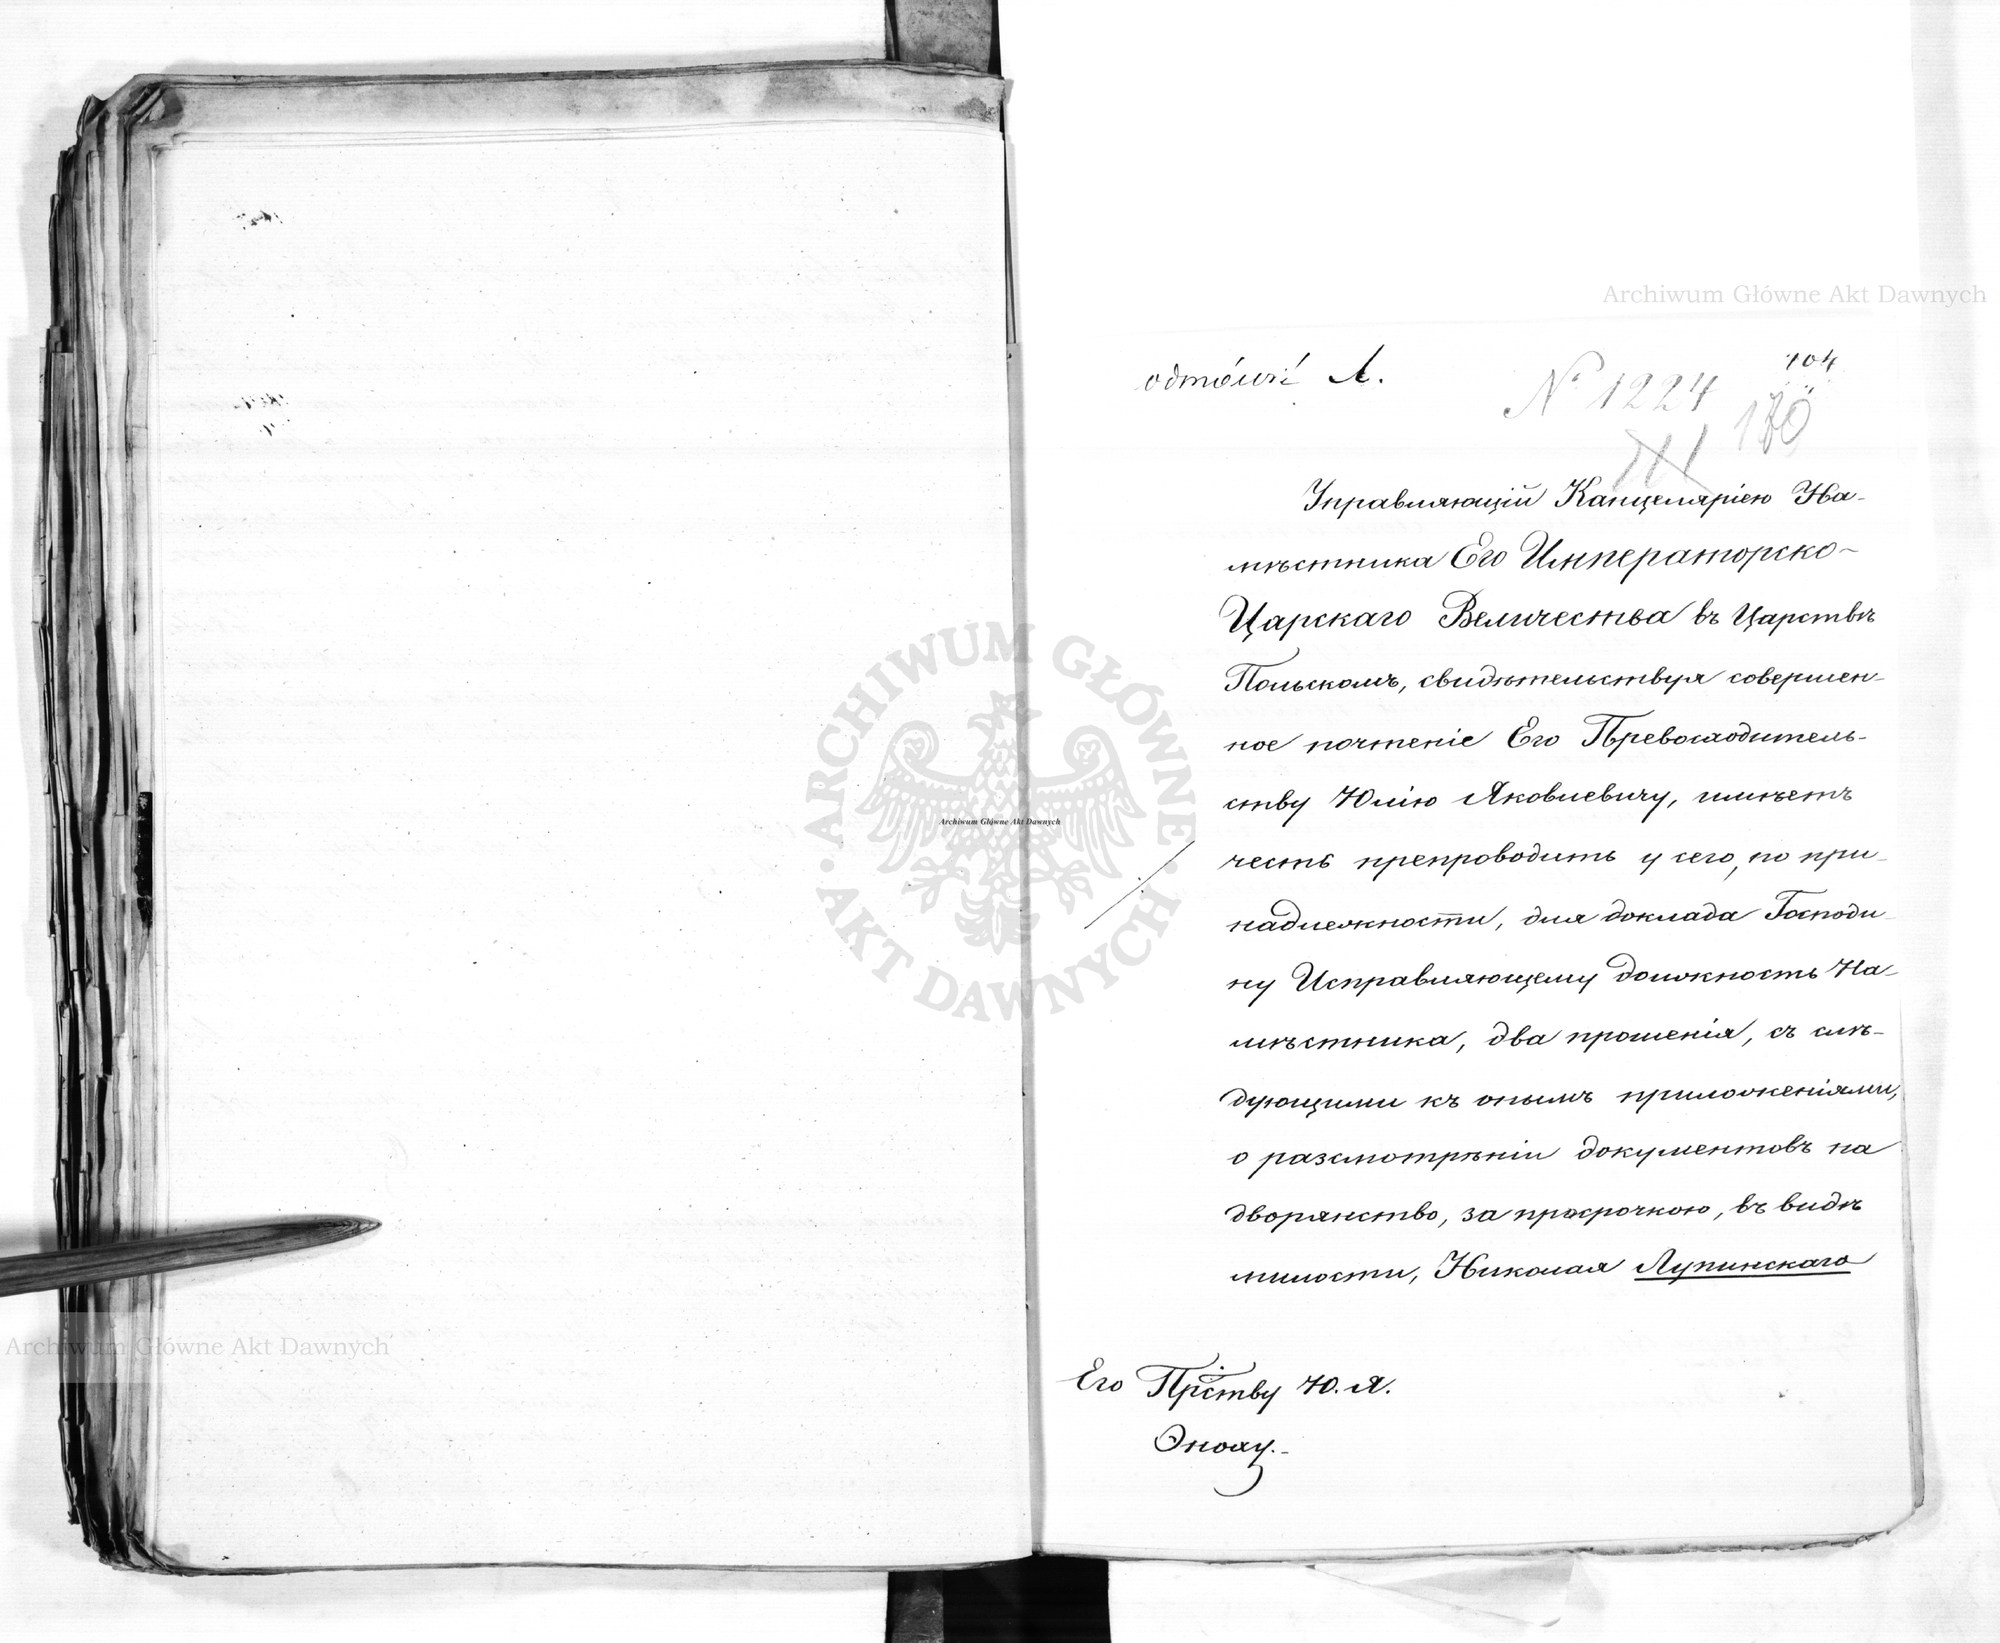 Archiwum Główne Akt Dawnych
A.
№ 1224
104
Управляющій Канцеляріею На-
мѣстника Его Императорско-
Царскаго Величества въ Царствѣ
Польскомъ, свидѣтельствуя совершен-
ное почтеніе Его Превосходитель-
ству Юлію Яковлевичу, имѣетъ
честь препроводить у сего, по при-
надлежности, для доклада Господи-
ну Исправляющему должность На-
мѣстника, два прошенія, съ слѣ-
дующими къ онымъ приложеніями,
о разсмотрѣніи документовъ на
дворянство, за просрочкою, въ видѣ
милости, Николая Лупинскаго
Его Прству Ю. Я.
Эноху.-
ARCHIWUM GŁÓWNE
AKT DAWNYCH
Archiwum Główne Akt Dawnych
Archiwum Główne Akt Dawnych